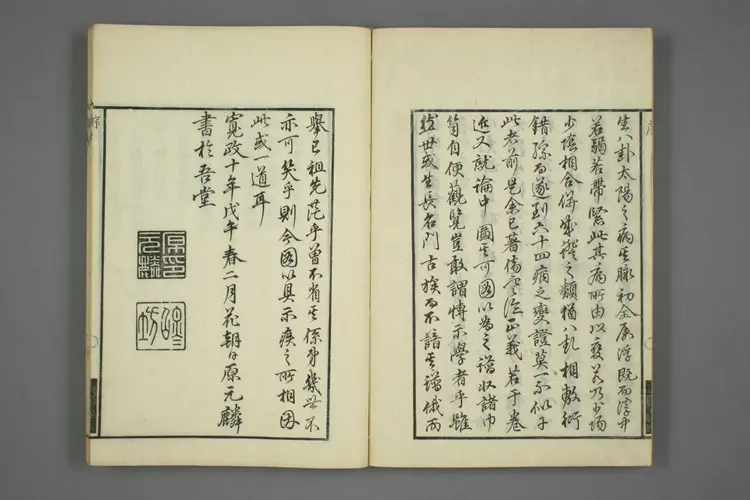 生八卦太陽之病其脉初全屬浮既而浮中
若弱若帶緊此其病所由以變若以少陽
少陰相合併或證之類猶八卦相敷衍
錯綜而遂到六十四病之變證莫不似于
此者前是余已著傷寒論正義若干卷
近又就論中圖其可圖以為之譜收諸巾
笥自便觀覽豈敢謂博示學者乎雖
然世或生長名門古族而不諳其譜俄而
舉已祖先茫乎曾不省其係身幾世不
亦可笑乎則今圖以具示疾之所相因
此或一道耳
寬政十年戊午春二月花朝日原元麟
書於吾堂
原印元麟